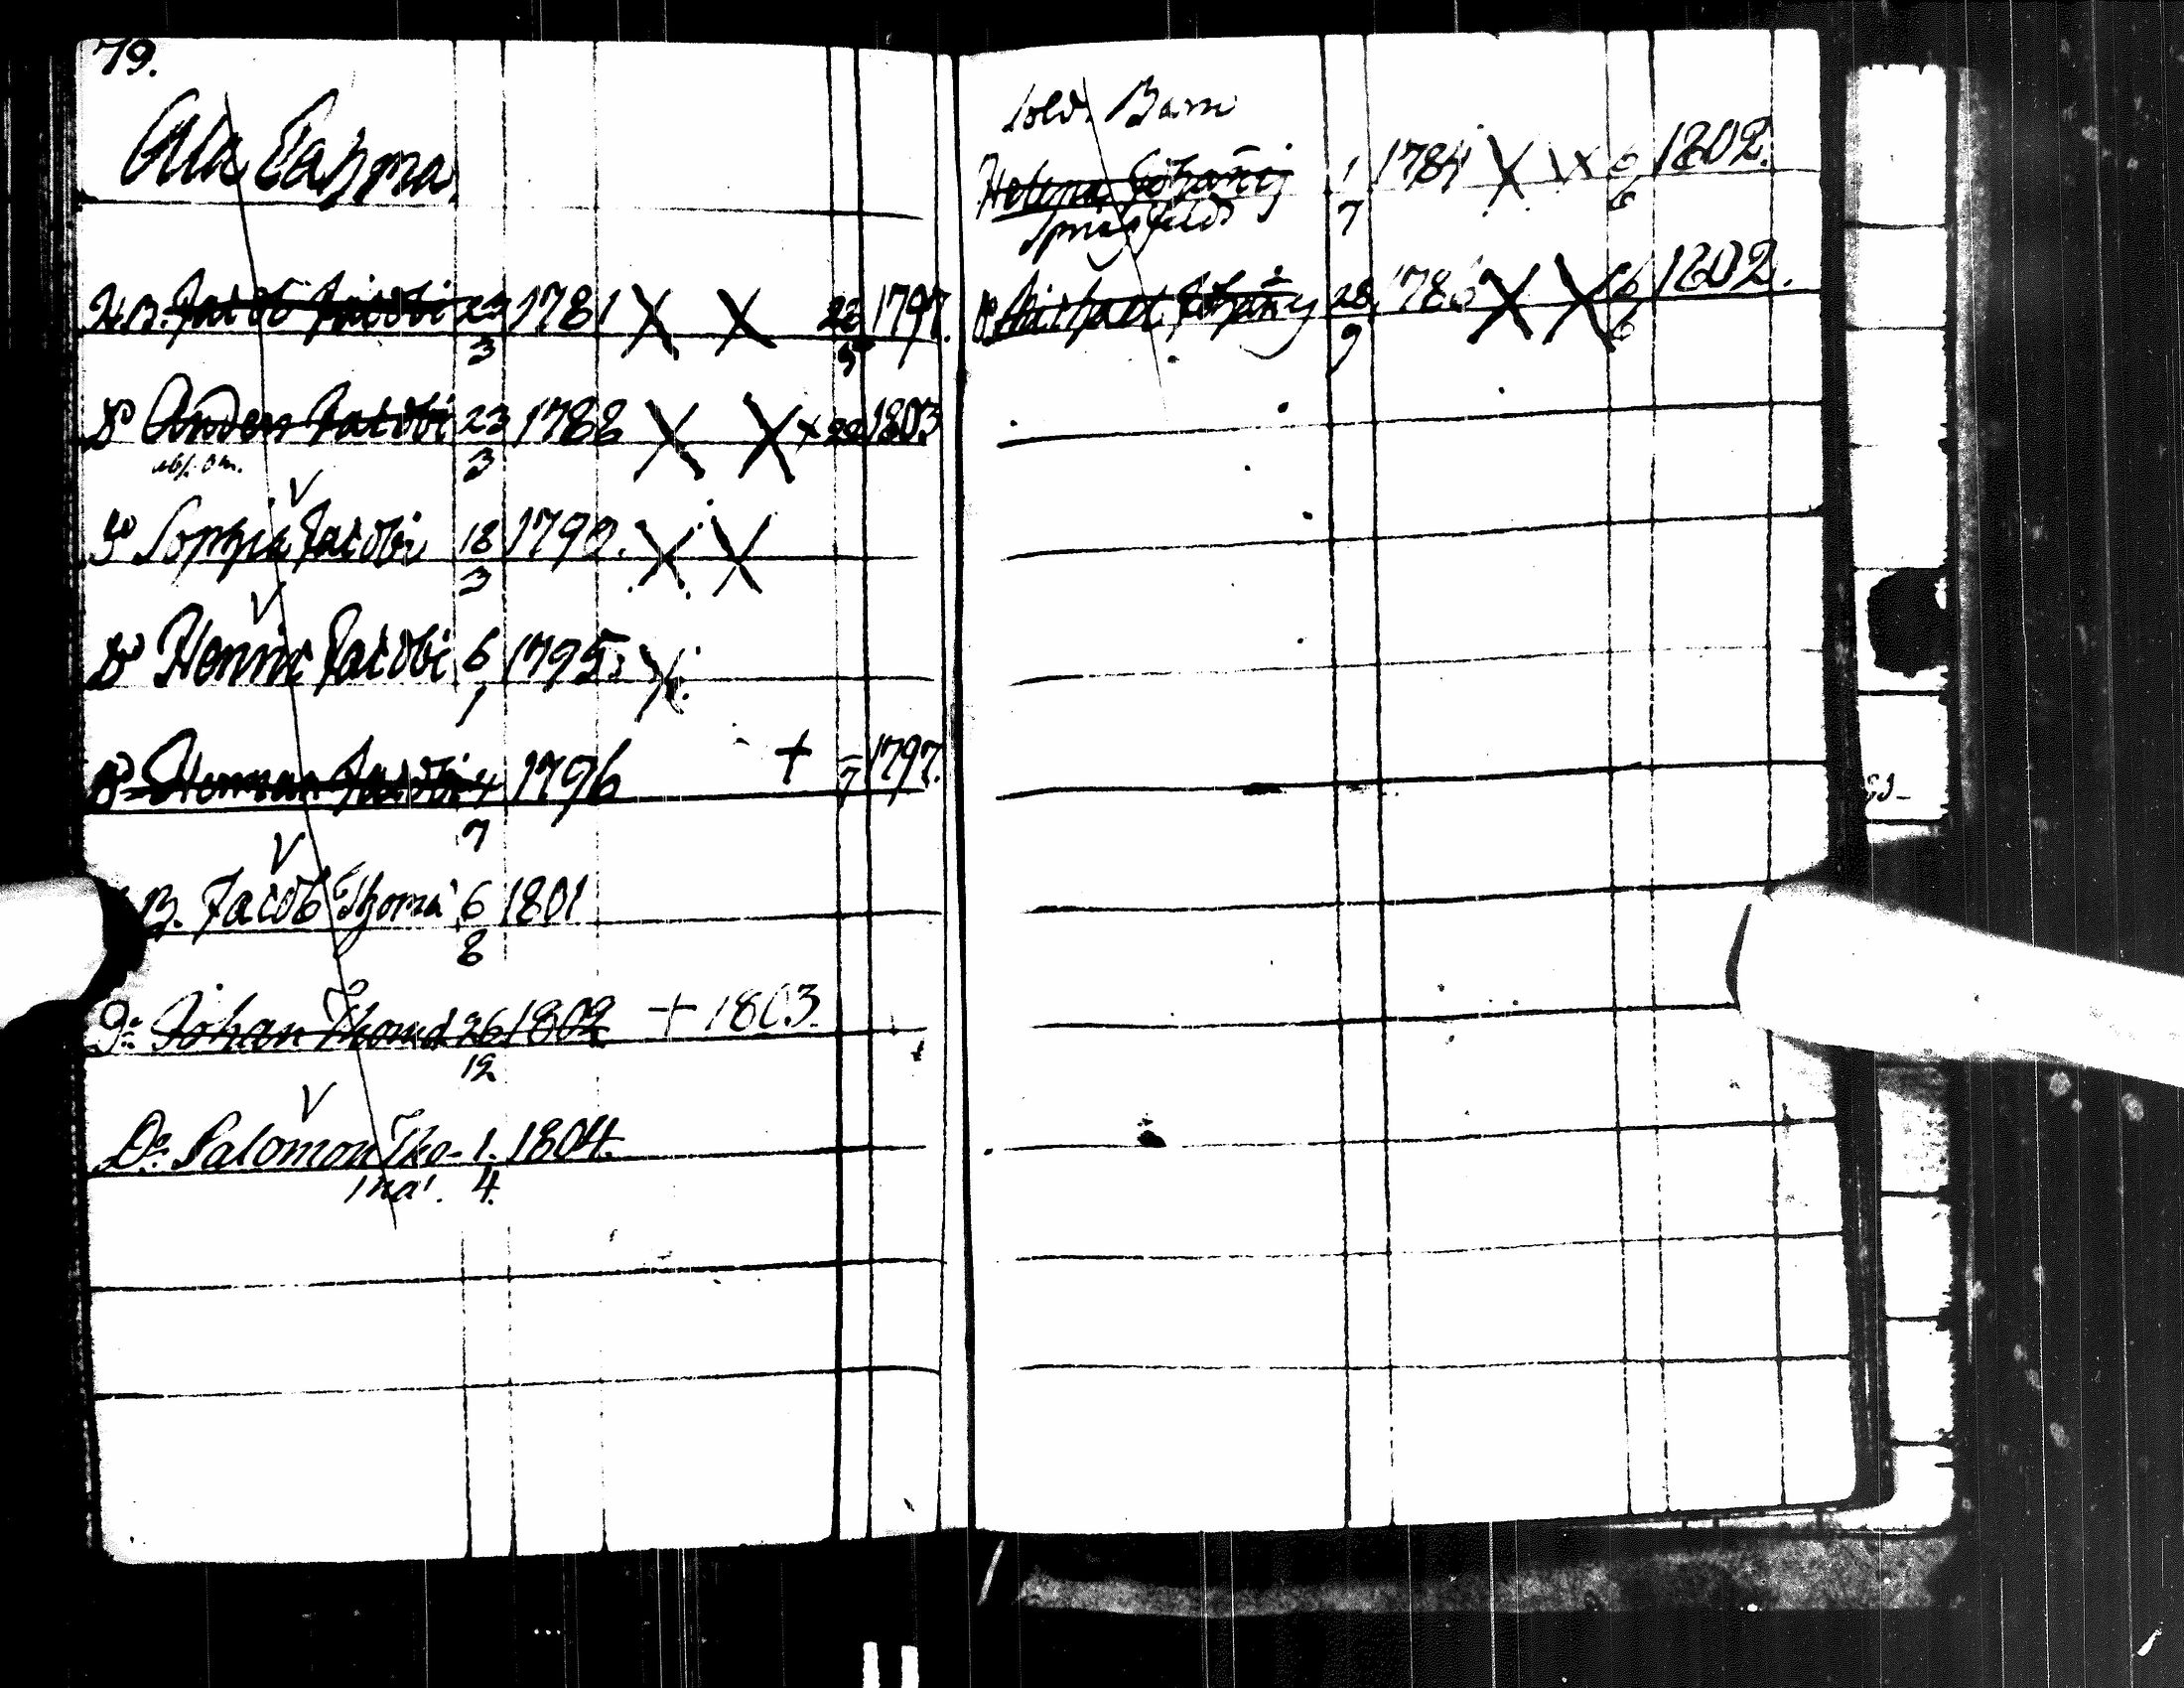 79.
Ala Pappa
H.B. Jacob Jacobi 23/3 1781 X X 22/3 1797.
D:o Anders Jacobi 23/3 1788 X X + 22 1803
D:o Sophia Jacobi 18/3 1790. X X
D:o Henric Jacobi 6/1 1795 X
D:o Herman Jacobi 4/7 1796 + 7 1797.
B. Jacob Thomæ 6/8 1801
D:o Johan Thomæ 26/12 1802 + 1803.
D:o Salomon Tho- 1/4 1804.
mæ.
Sold. Barn
Helena Johan̄is 1/7 1784 X X 6/6 1802.
D:o Michael Johan̄is 28/9 1786 X X 6/6 1802.